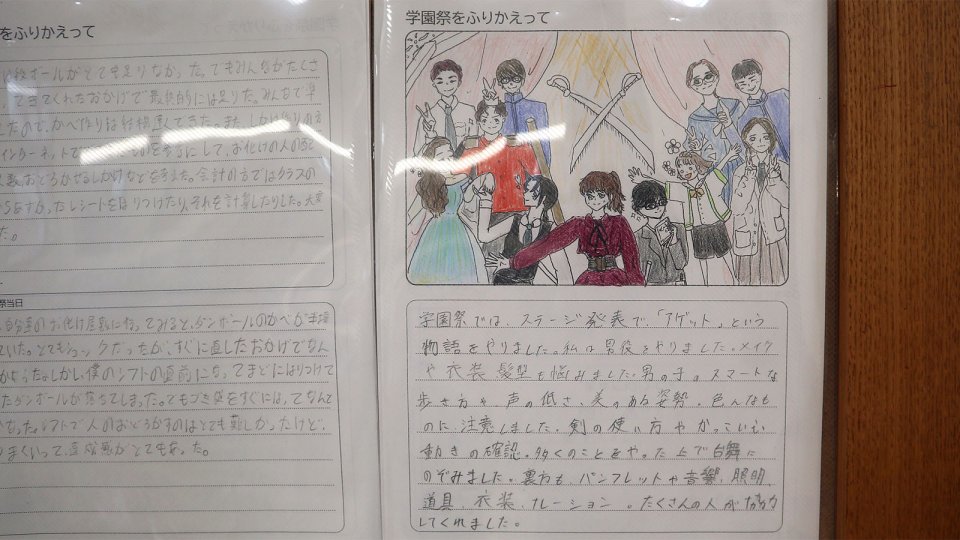 をふりかえって
段ボールがとても足りなかった。でもみんながたくさ
てきてくれたおかげで最終的には足りた。みんなで準
したので、かべ作りは結構
インターネットで にして、お化けの人の配
数、おどろかせるしかけなどを考えた。会計の方ではクラスの
レシートをはりつけたり、それを計算したりした。大変
た。
祭当日
のお化け屋敷になってみると、ダンボールのかべが
ていた。とてもショックだったが、すぐに直したおかげでなん
しかし僕のシフトの直前になってまどにはりつけて
たダンボールが落ちてしまった。でもすぐに なんて
った。シフトで人のおどろかすのはとても難しかったけど、
うまくいって、達成感がとてもあった。
学園祭をふりかえって
学園祭では、ステージ発表で、「アゲット」という
物語をやりました。私は男役をやりました。メイク
や衣装、髪型も悩みました。男の子のスマートな
歩き方や声の低さ、美のある姿勢。色んなも
のに注意しました。剣の使い方やかっこいい
動きの確認。多くのことをやった上で台舞に
のぞみました。裏方も、パンフレットや音響、照明、
道具、衣装、ナレーション。たくさんの人が協力
してくれました。